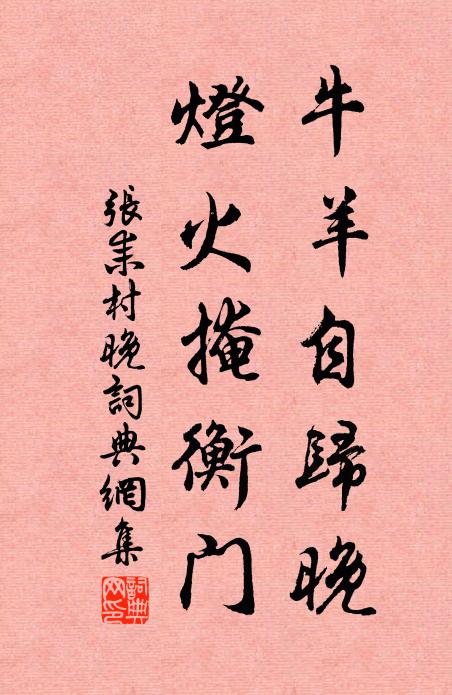 牛羊自歸晚
燈火掩衡門
張耒村晚詞典網集
詞典網印